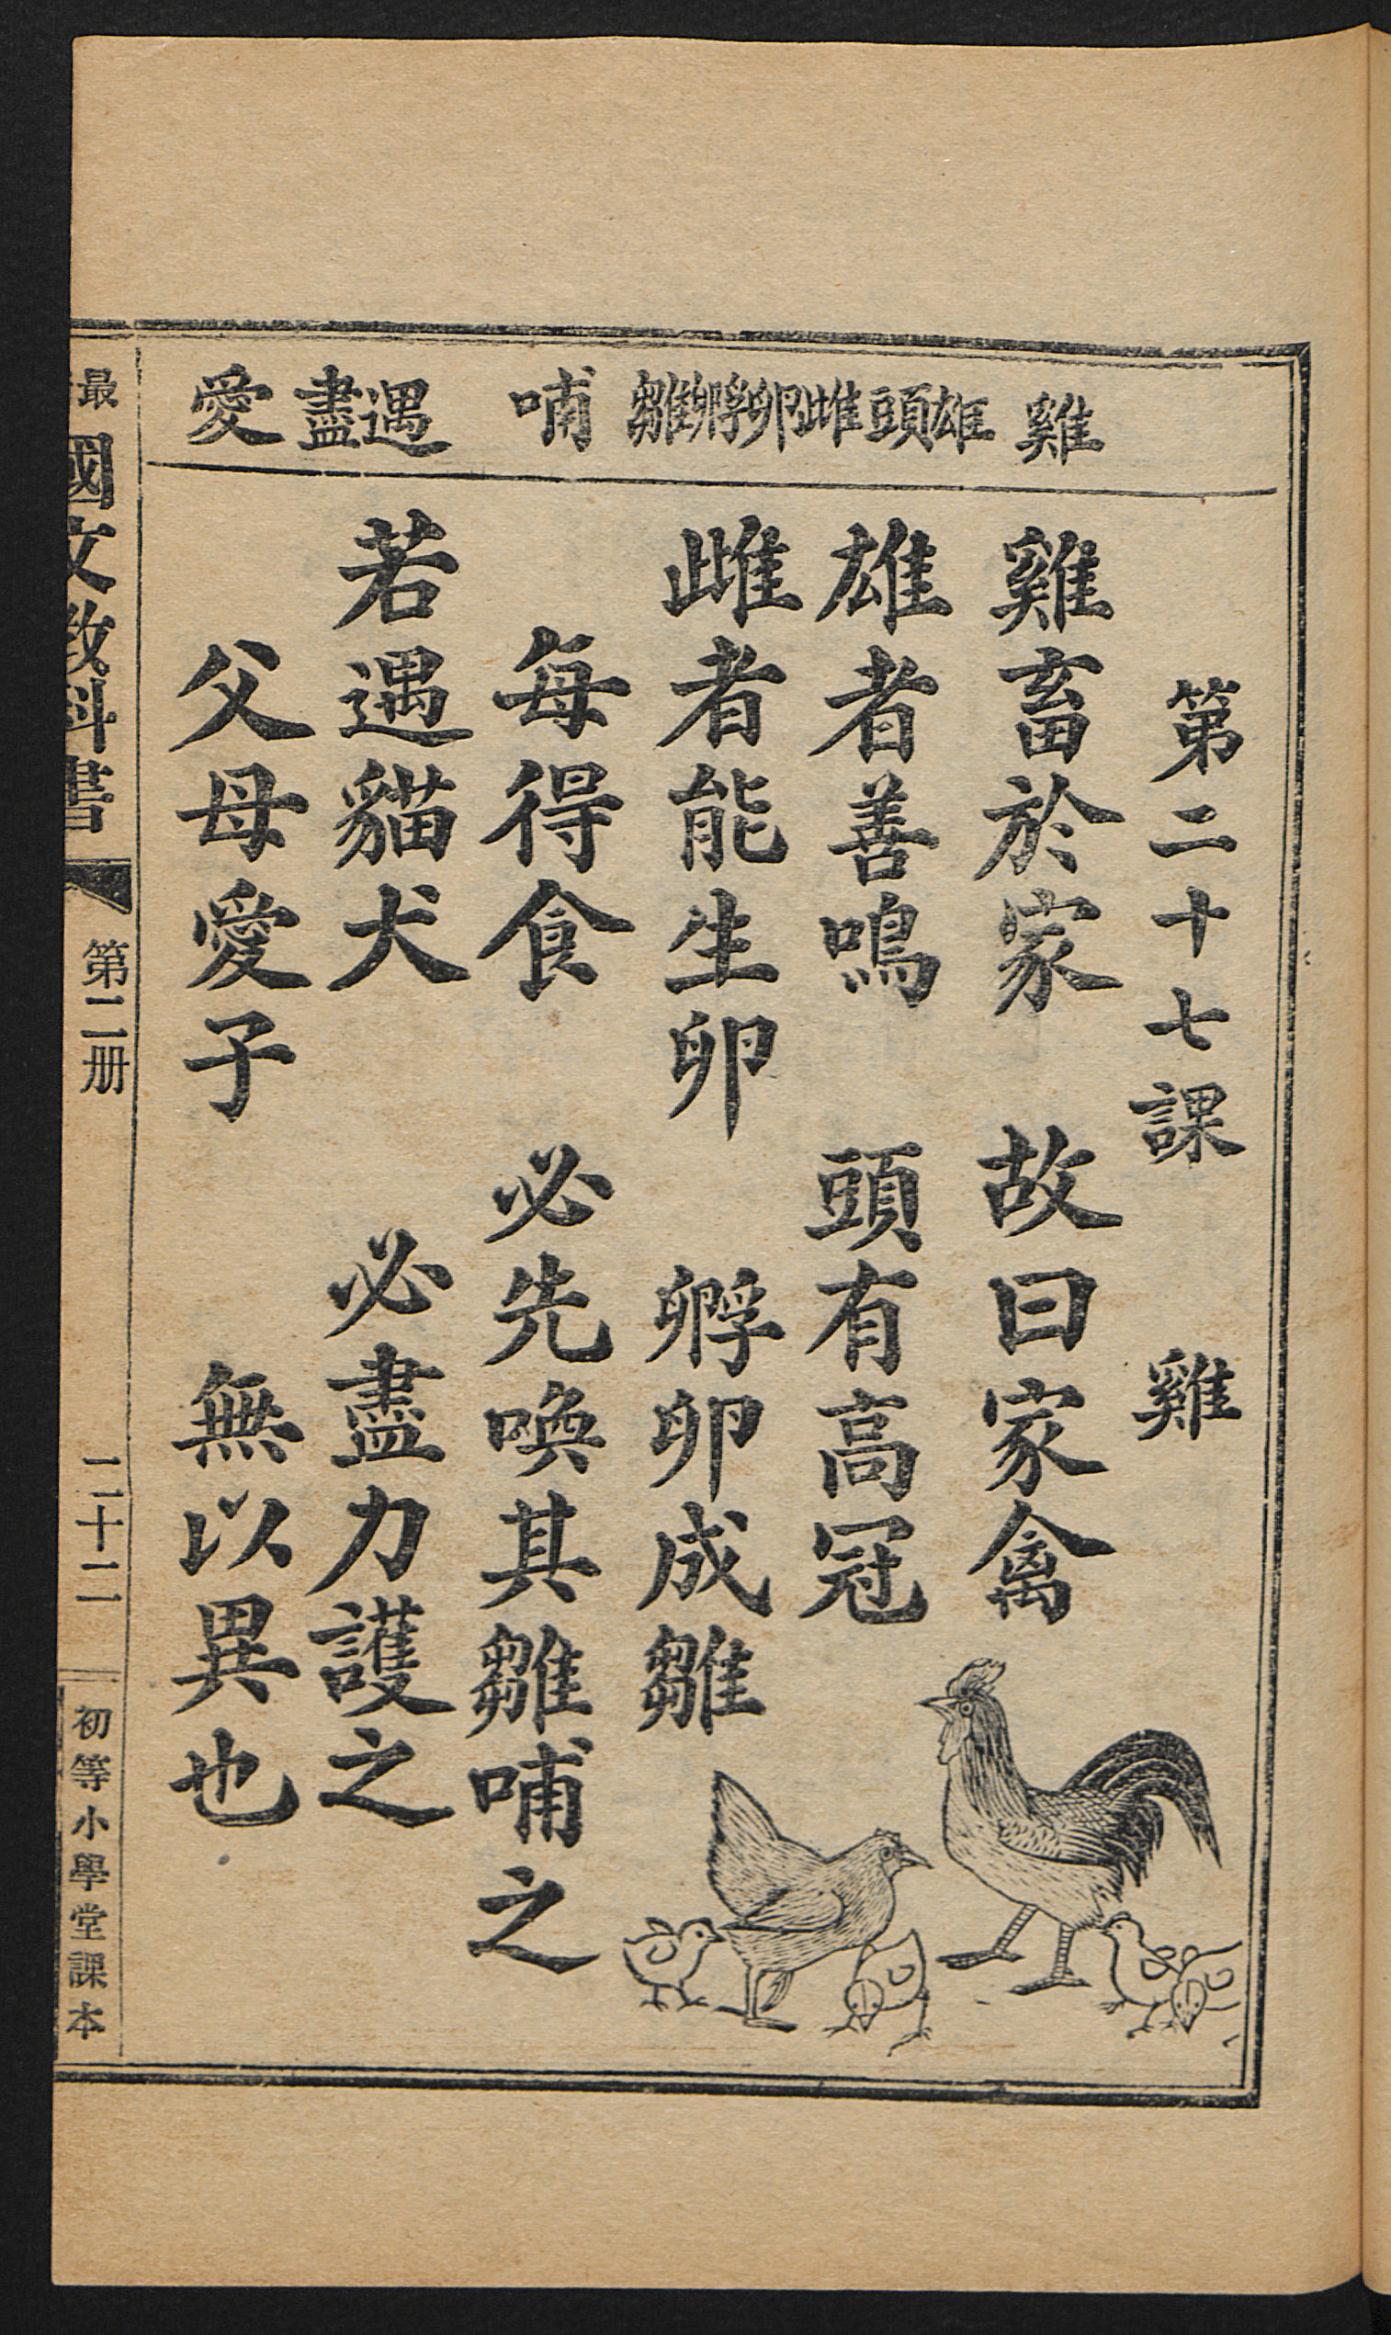 雞 雄 頭 雌 卵 孵 雛 哺 遇 盡 愛
第二十七課 雞
雞畜於家 故曰家禽
雄者善鳴 頭有高冠
雌者能生卵 孵卵成雛
每得食 必先喚其雛哺之
若遇貓犬 必盡力護之
父母愛子 無以異也
最 國文教科書 第二册 二十二 初等小學堂課本